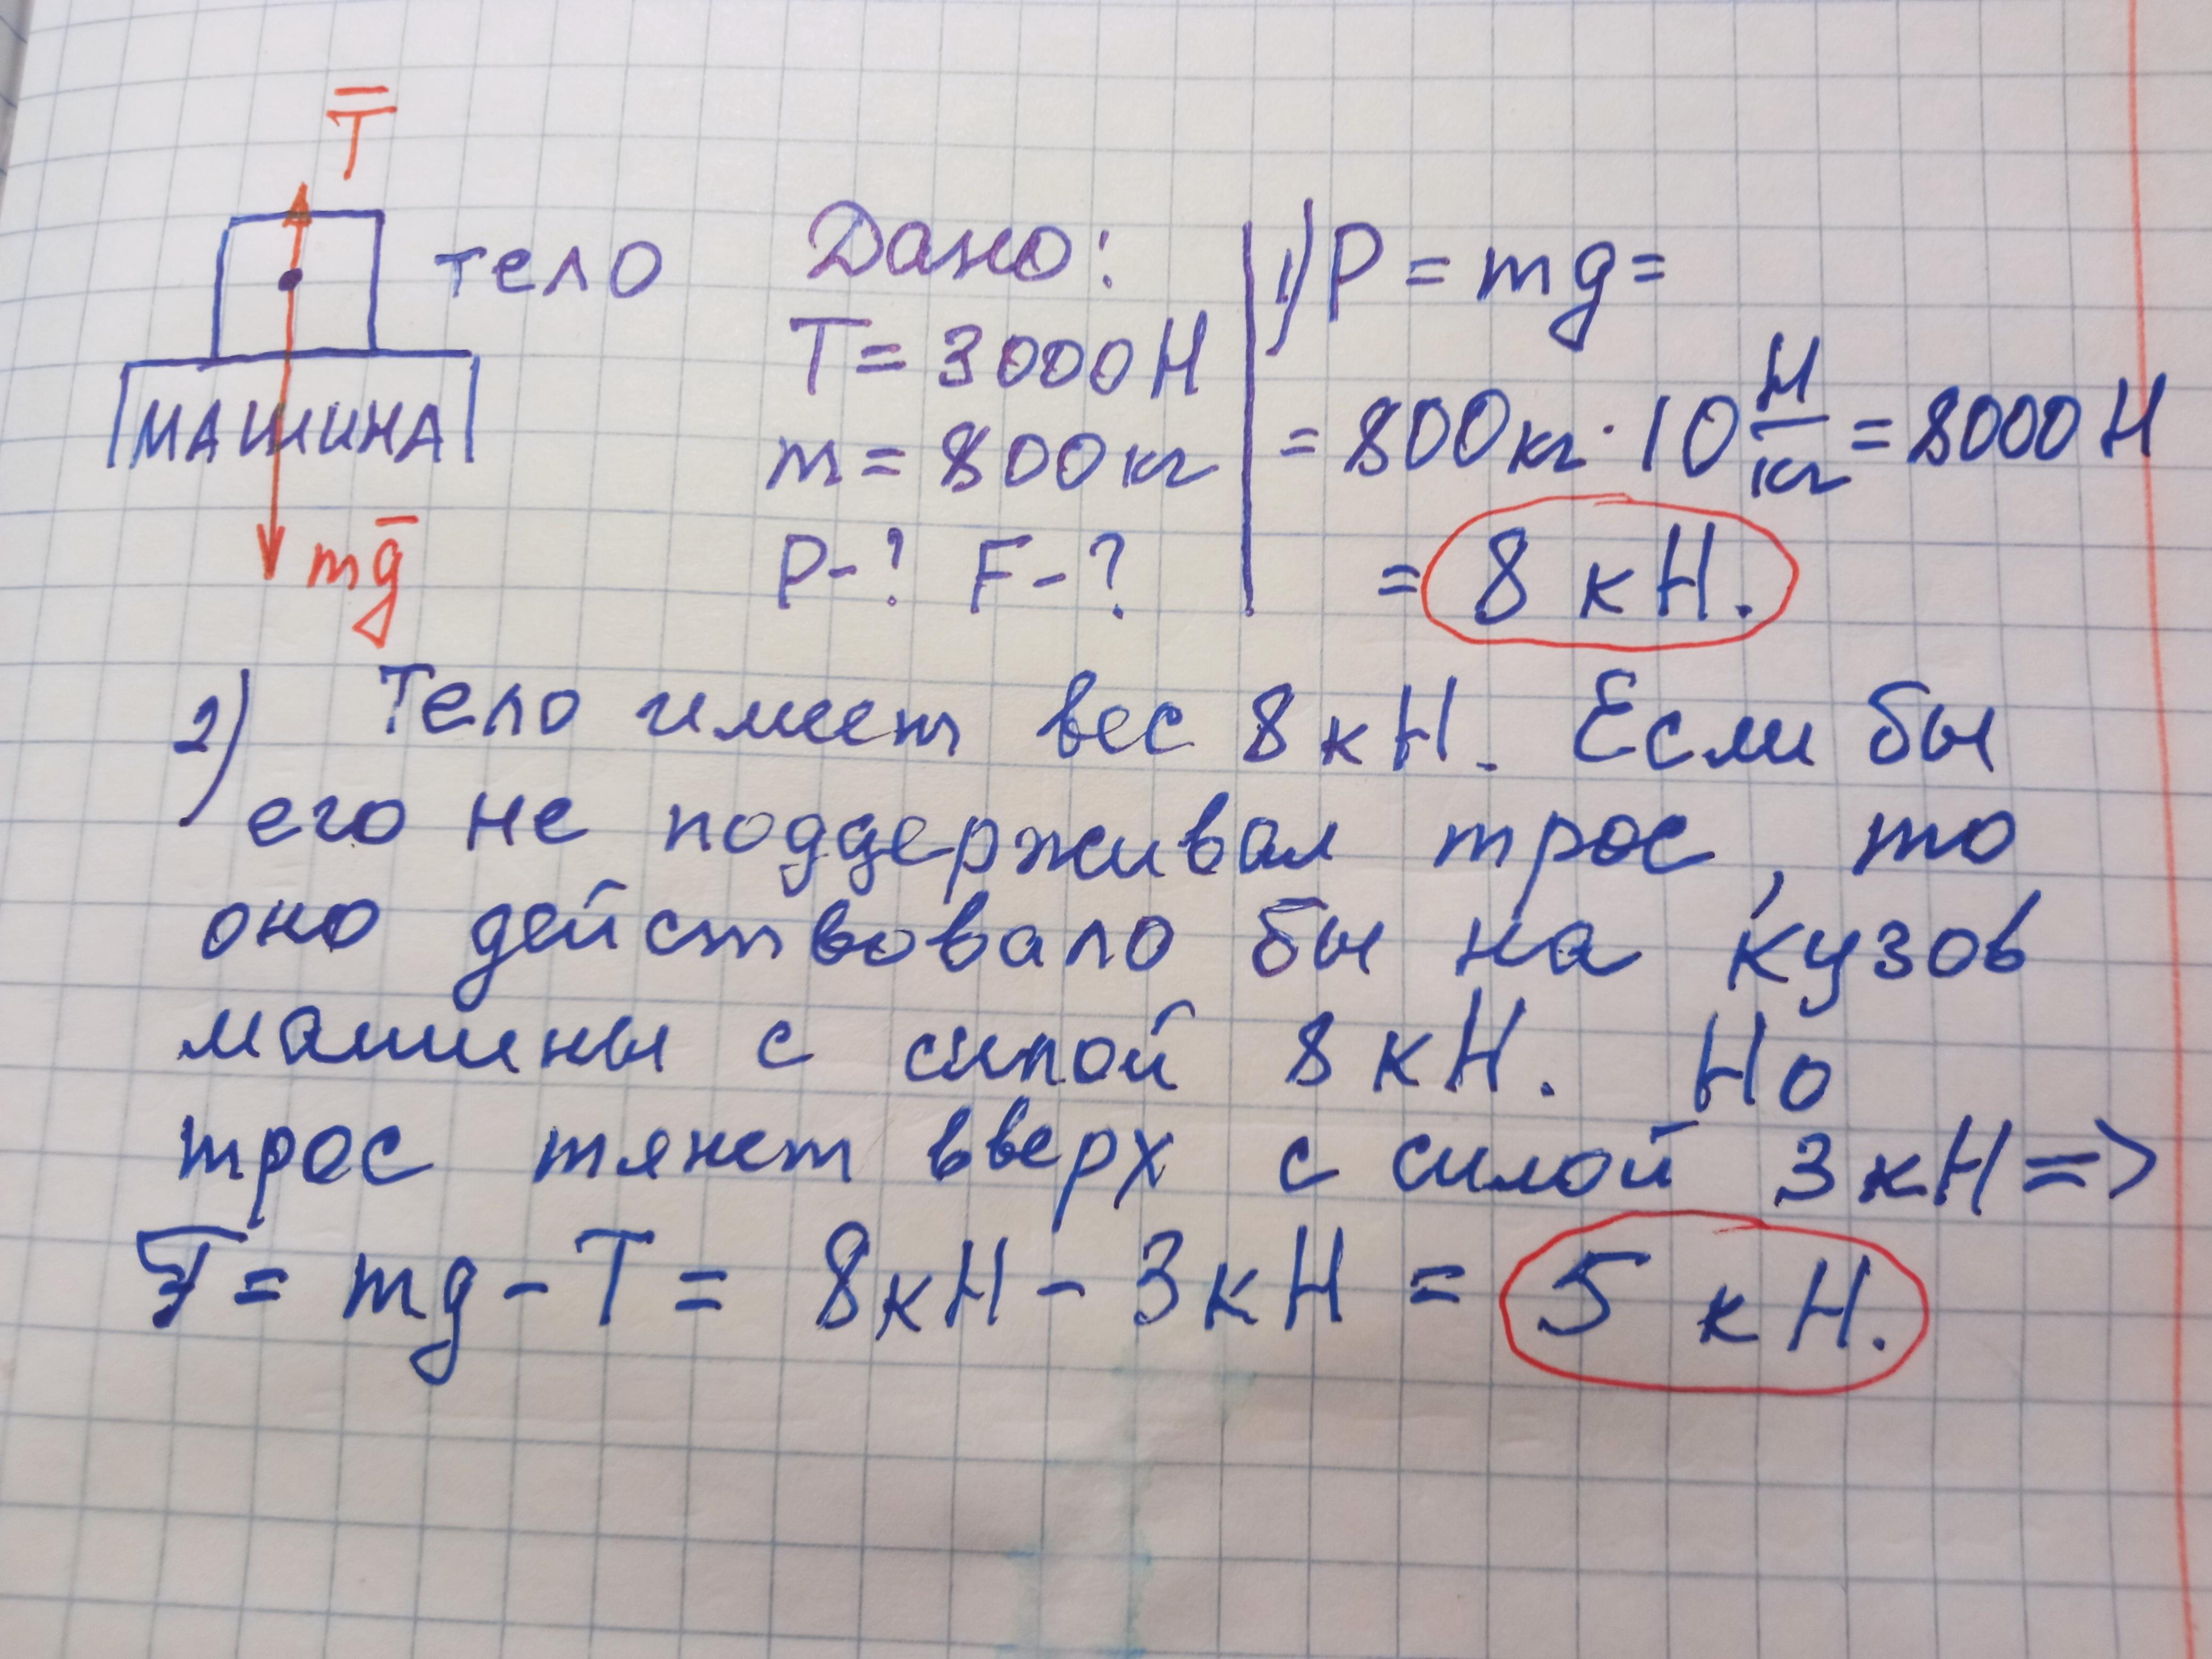 T̅
тело
МАШИНА
mg̅
Дано:
T = 3000 Н
m = 800 кг
P-? F-?
1) P = mg =
= 800 кг · 10 Н/кг = 8000 Н
= 8 кН.
2) Тело имеет вес 8 кН. Если бы
его не поддерживал трос, то
оно действовало бы на кузов
машины с силой 8 кН. Но
трос тянет вверх с силой 3 кН =>
F = mg - T = 8 кН - 3 кН = 5 кН.